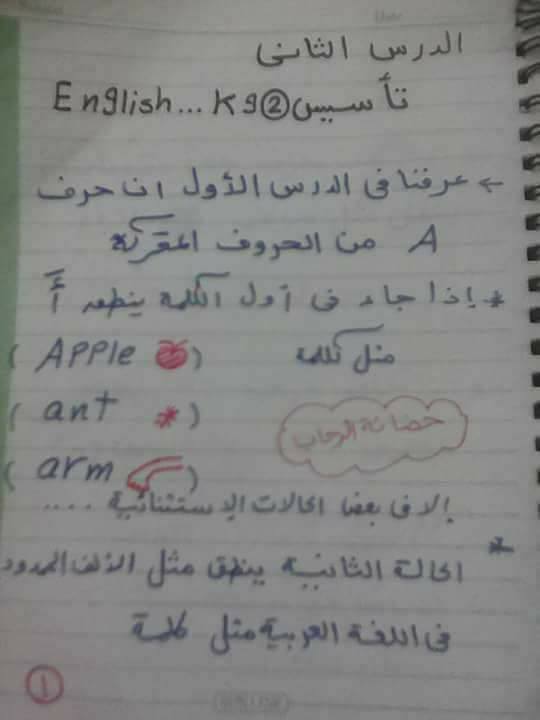 الدرس الثانى
تأسيس English... Kg②
← عرفنا فى الدرس الأول ان حرف
A من الحروف المتحركة
* إذا جاء فى أول الكلمة ينطق أَ
مثل كلمة (Apple)
(ant)
(arm)
حضانة الرحاب
إلا فى بعض الحالات الإستثنائية ....
* الحالة الثانية ينطق مثل الألف الممدود
فى اللغة العربية مثل كلمة
①